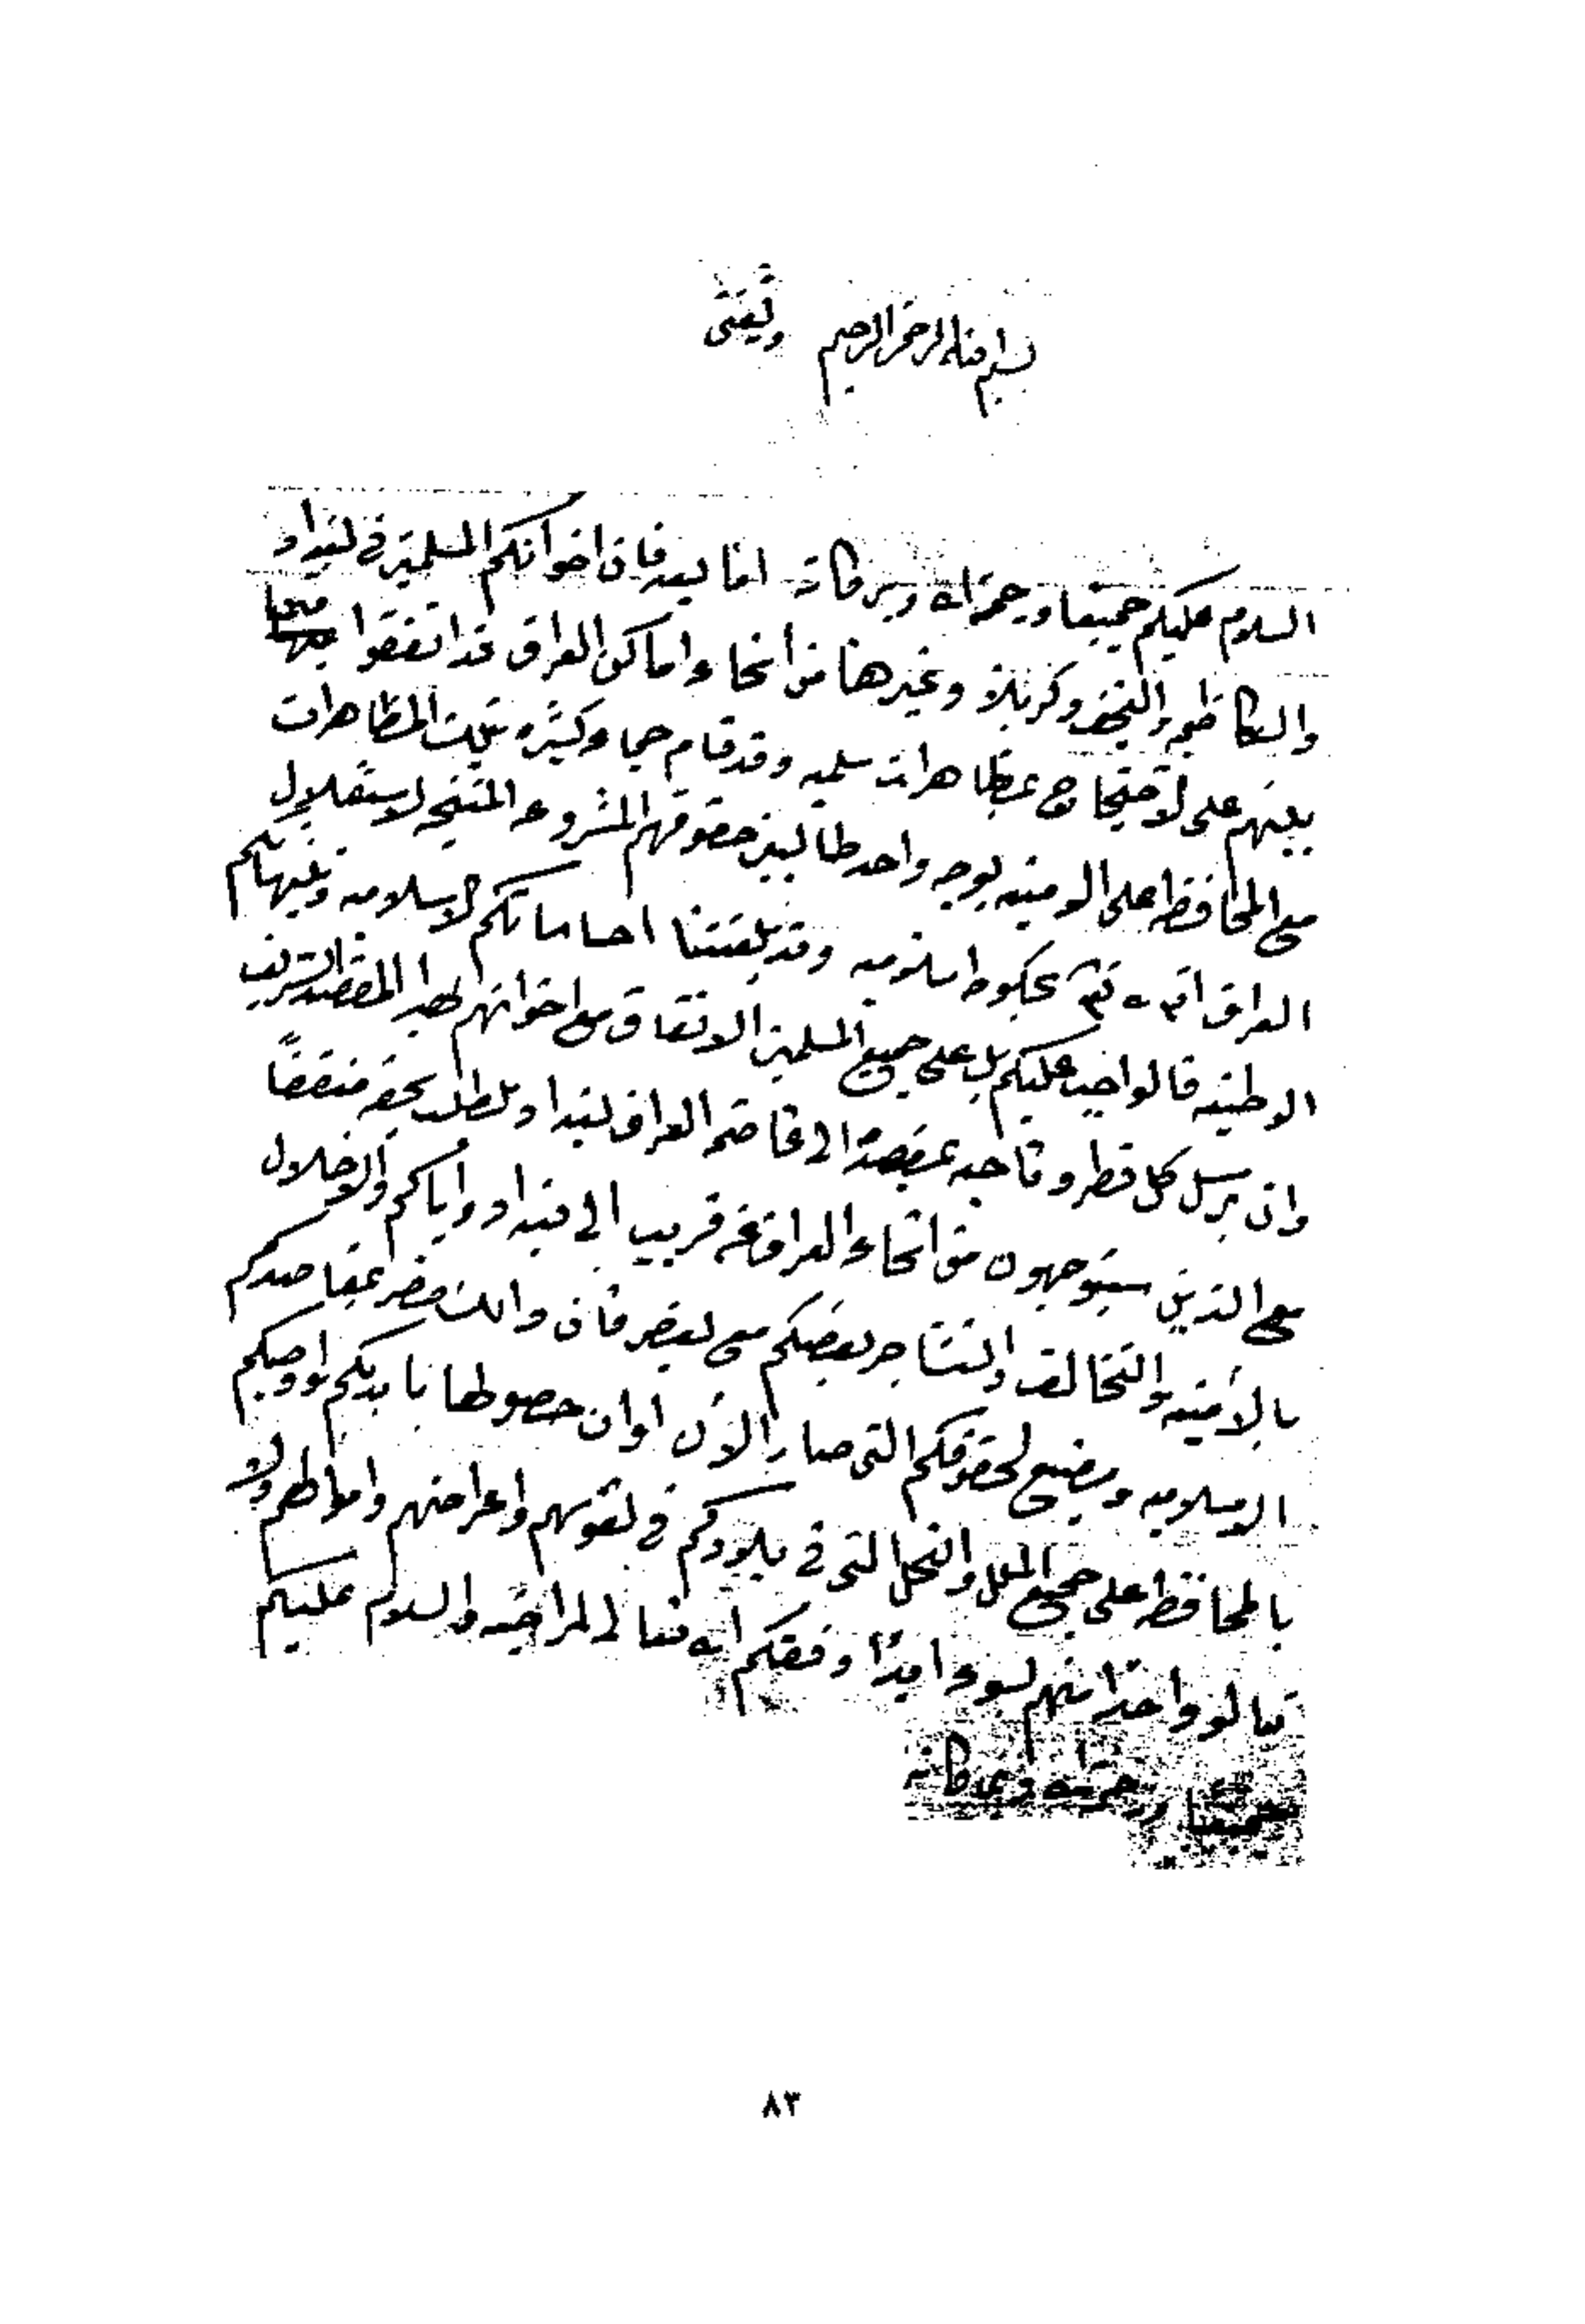 بسم الله الرحمن الرحيم وثقتي
السلام عليكم جميعا ورحمة الله وبركاته اما بعد فان اخوانكم المسلمين في بغداد
والكاظمية والنجف وكربلاء وغيرها من أنحاء واماكن العراق قد اتفقوا فيما
بينهم على الاحتجاج بمظاهرات سلمية وقد قام جماعة كثيرة بتلك المظاهرات
مع المحافظة على الامنية بوجه واحد طالبين حقوقهم المشروعة المنتجة لاستقلال
العراق انشاء الله بحكومة اسلامية وقد بلغتنا احساساتكم الاسلامية وتنبهاتكم
الوطنية فالواجب عليكم بل على جميع المسلمين الاتفاق مع اخوانهم لهذا المقصد الشريف
وان يرسل كل قطر وناحية بمقصده الى عاصمة العراق بغداد لطلب حقه متفقًا
مع الذين سيتوجهون من انحاء العراق عن قريب الى بغداد واياكم والاخلال
بالأمنية والتخالف والتشاجر بعضكم مع بعض فان ذالك مضر بمقاصدكم
الاسلامية ومضيع لحقوقكم التي صار الآن اوان حصولها بايديكم واوصيكم
بالمحافظة على جميع الملل والنحل التي في بلادكم في نفوسهم واعراضهم واموالهم ولا
تنالوا واحدًا منهم بسوء ابدًا وفقكم الله تعالى لمراضيه والسلام عليكم
جميعًا ورحمة الله وبركاته
٨٣